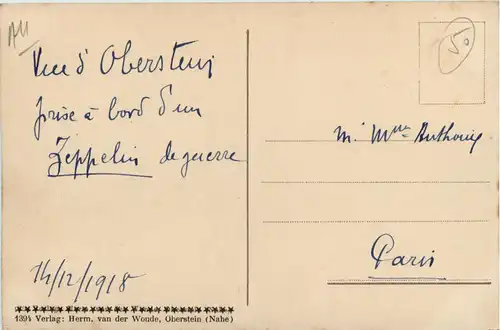 All
50
Vue d'Oberstein
prise à bord d'un
Zeppelin de guerre
M. Mme Anthony
Paris
14/12/1918
1394 Verlag: Herm. van der Woude, Oberstein (Nahe)